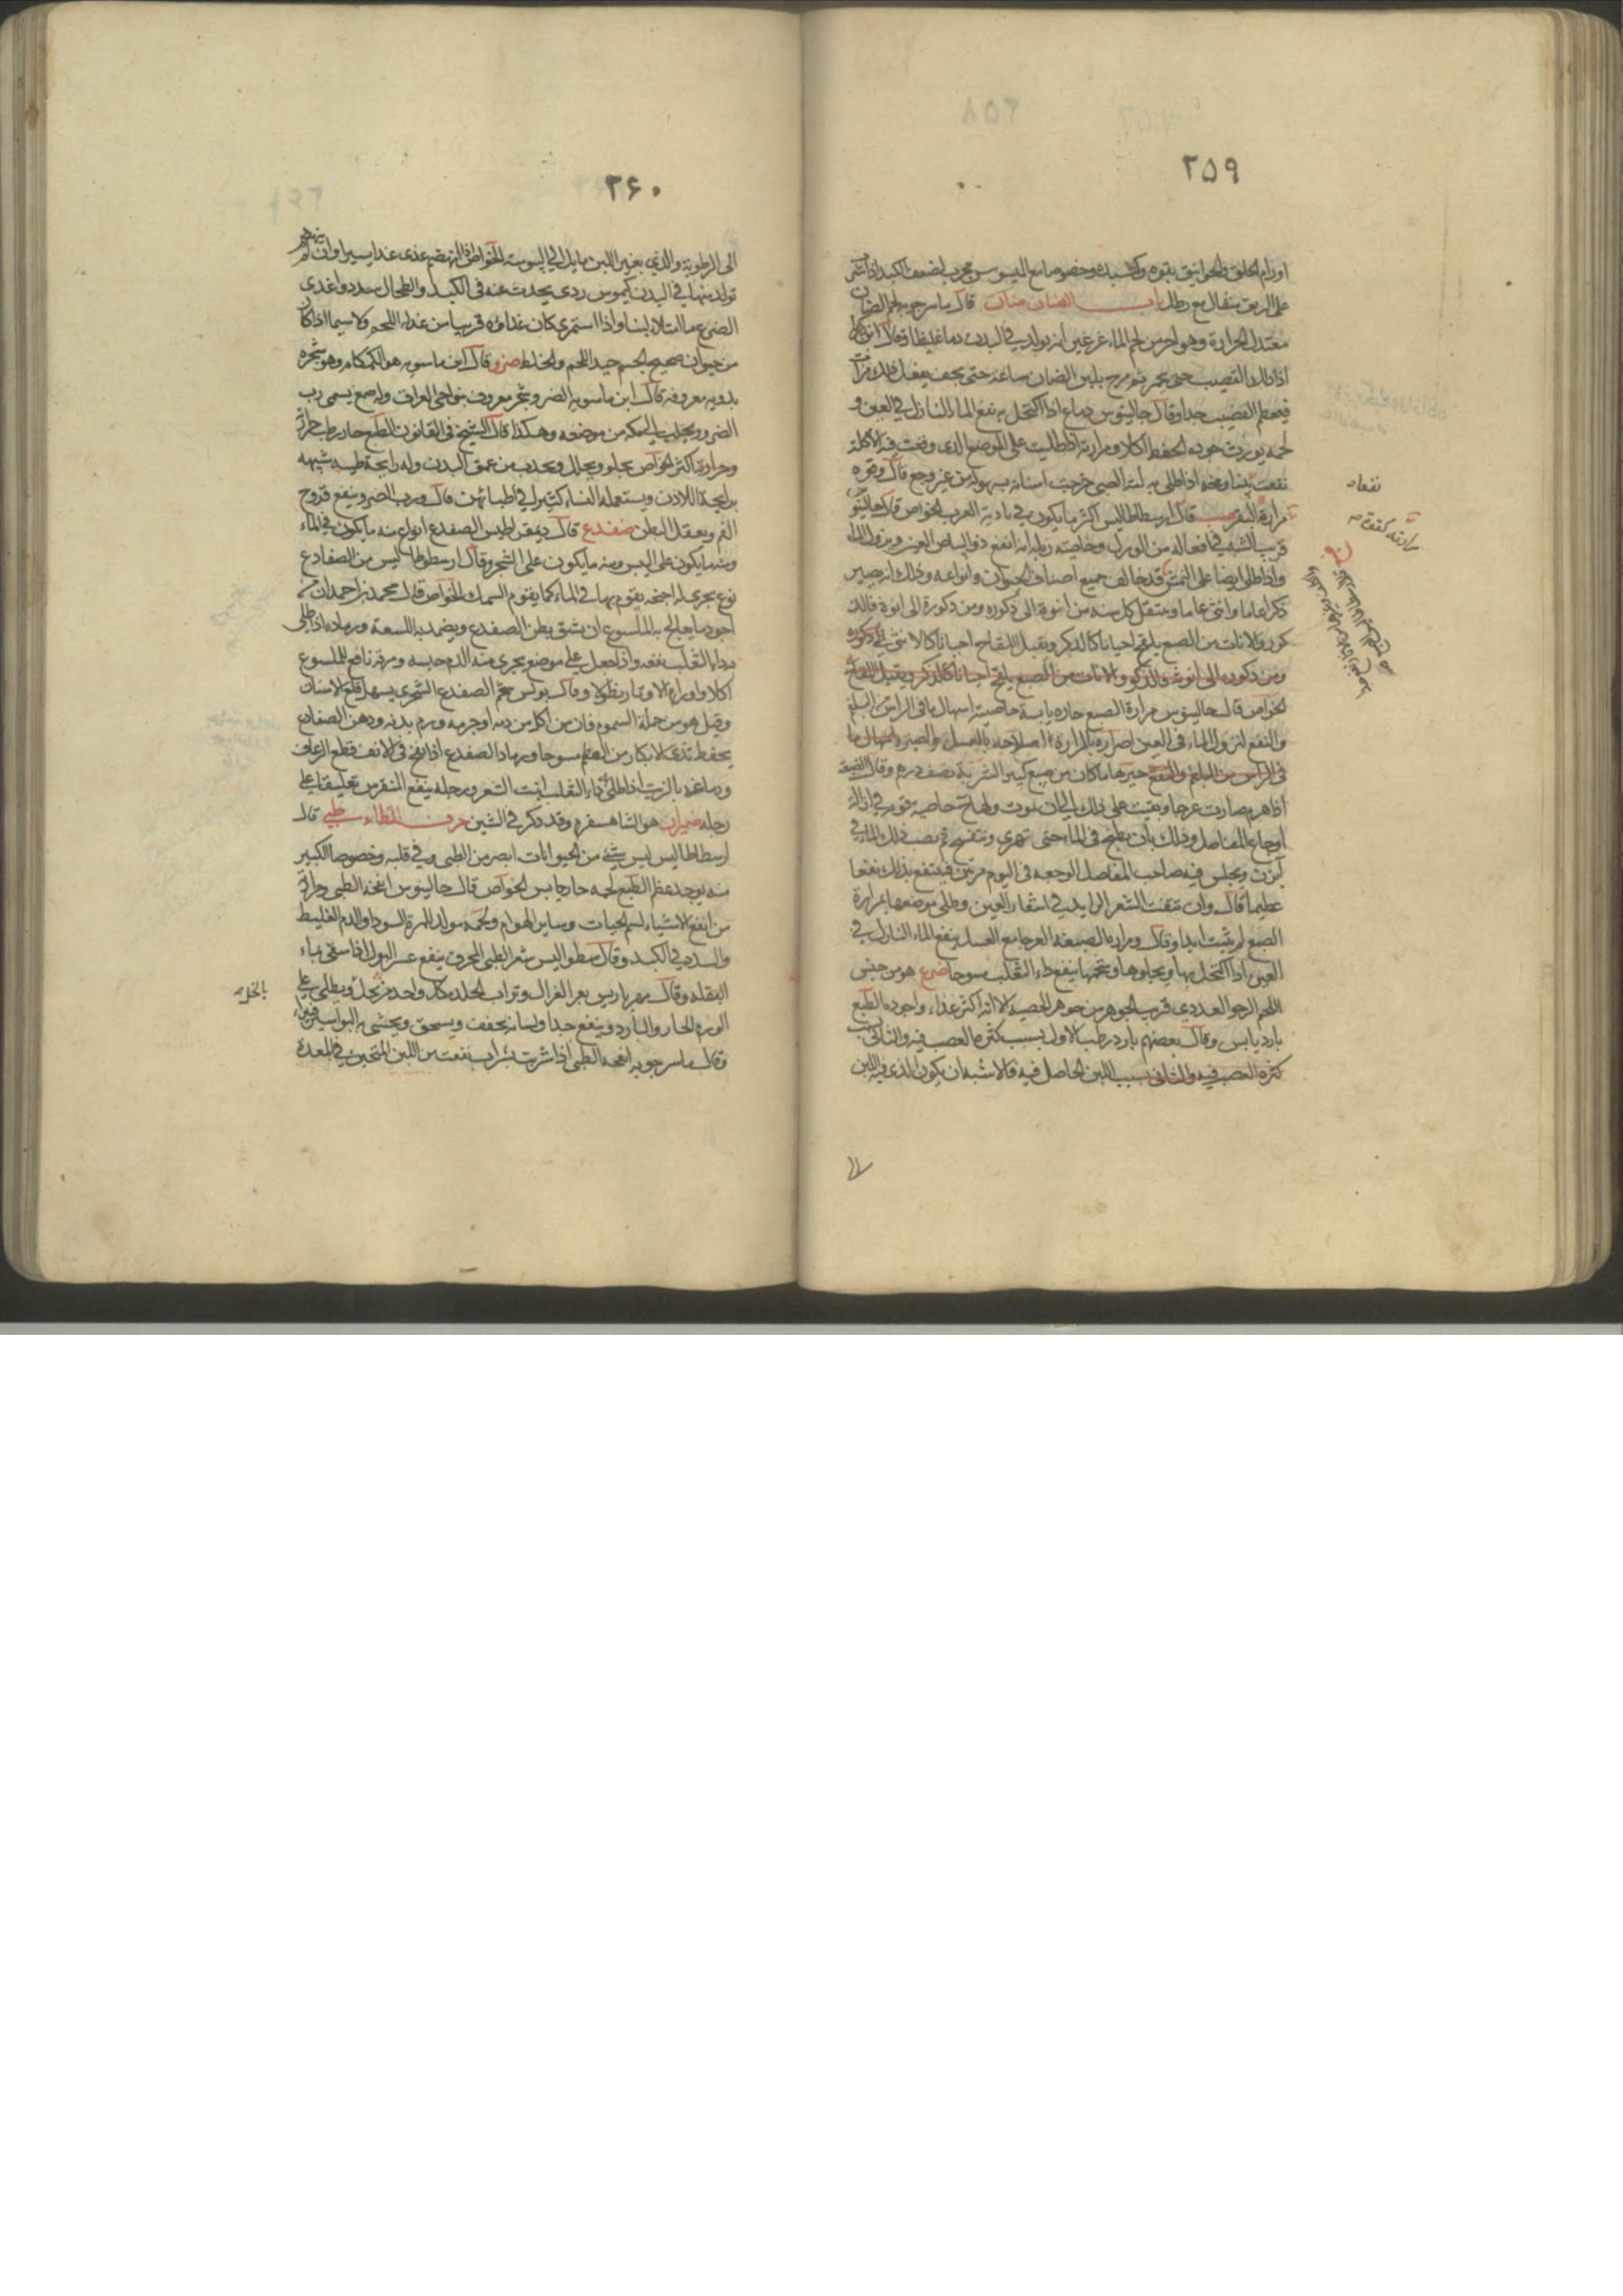 ۲۵۹
اورام الحلق والخوانيق بقوه وخصوصا مع السوسن مجرب لضعف الكبد اذا شرب
على الريق مثقال مع رطل باب الضاد ضان قال ماسرجويه لحم الضان
معتدل الحرارة وهو احر من لحم الماعز غير انه يولد في البدن دما غليظا وقال
اذا دلك القضيب حتى يحمر ثم مرخ بلبن الضان ساعة حتى يجف يفعل ذلك مرات
فيعظم القضيب جدا وقال جالينوس دماغ اذا اكتحل به نفع الماء النازل في العين و
لحمه يورث جوده الحفظ اكلا ومرارته اذا طليت على الموضع الذي وقعت فيه الاكلة
نفعت ومخه اذا طلى به لثة الصبي خرجت اسنانه بسهولة من غير وجع قال
مرارة البقر ضب قال ارسطاطاليس اكثر ما يكون في بادية العرب الخواص قال جالينوس
قريب الشبه في افعاله من الورل وخاصيته زبله انه انفع دواء لبياض العين ونزول الماء
واذا طلى ايضا على النمش قد خالف جميع اصناف الحيوان وانواعه وذلك انه يصير
ذكرا عاما وانثى عاما وينتقل كل سنه من انوثة الى ذكوره ومن ذكورة الى انوثة فالذ
كور والاناث من الضبع يلقح احيانا كالذكر ويقبل اللقاح احيانا كالانثى
ومن ذكوره الى انوثة فالذكور والاناث من الضبع يلقح احيانا كالذكر ويقبل اللقاح
الخواص قال جالينوس مرارة الضبع حاره يابسة خاصيته اسهال ما في الراس من البلغم
والنفع لنزول الماء في العين بالعسل والصبر
في الراس من البلغم والنفع خيرها ما كان من ضبع كبير الشربة نصف درهم وقال الضبعة
اذا هرم صارت عرجا وبقيت على ذلك الى ان تموت ولها خاصيه قويه في ازالة
اوجاع المفاصل وذلك بان يطبخ في الماء حتى تهرى وتنفسخ ثم يصب ذلك الماء في
آبزن ويجلس فيه صاحب المفاصل الوجعه في اليوم مرتين فينتفع بذلك نفعا
عظيما قال وان نتفت الشعر الزايد في اشفار العين وطلى موضعها بمرارة
الضبع لم ينبت ابدا وقال ومرارة الضبعة العرجا مع العسل ينفع الماء النازل في
العين اذا اكتحل بها ويجلوها وشحمها ينفع داء الثعلب مسوحا ضرع هو من جنس
اللحم الرخو الغددي قريب الجوهر من جوهر الخصيه الا انه اكثر غذاء واجوده الطبع
بارد يابس وقال بعضهم بارد رطب الاول بسبب كثرة العصب فيه والثاني بسبب
كثرة العصب فيه والثاني بسبب اللبن الحاصل فيه فالاشبه ان يكون الذي فيه اللبن
نفعا
۲۶۰
الى الرطوبة والذي بغير اللبن مايل الى اليبوسة الخواص اذا انهضم غذى غذا يسيرا وان لم ينهضم
تولد منها في البدن كيموس ردى يحدث عنه في الكبد والطحال سدد واغذى
الضرع ما امتلا لبنا واذا استمرى كان غذاؤه قريبا من غذاء اللحم ولا سيما اذا كان
من حيوان صحيح الجسم جيد اللحم والخلط ضرو قال ابن ماسويه هو الكمكام وهو شجره
بدويه معروفة قال ابن ماسويه الضرو شجر معروف بنواحي العراق وله صمغ يسمى رب
الضرو ويجلب الى مكه من موضعه وهكذا قال الشيخ في القانون الطبع حار رطب
وحرارته اكثر الخواص يجلو ويحلل ويجذب من عمق البدن وله رايحة طيبه شبيهه
برايحة اللاذن ويستعمله النساء كثيرا في اطيابهن قال ورب الضرو ينفع قروح
الفم ويعقل البطن ضفدع قال ديمقراطيس الضفدع انواع منه ما يكون في الماء
ومنه ما يكون على اليبس ومنه ما يكون على الشجر وقال ارسطوطاليس من الضفادع
نوع بحري له اجنحة يقوم بها في الماء كما يقوم السمك الخواص قال محمد بن احمد ان من
اجود ما يعالج به الملسوع ان يشق بطن الضفدع ويضمد به اللسعة ورماده اذا طلى
بداء الثعلب نفعه واذا جعل على موضع يجرى منه الدم حبسه ومرقه نافع للملسوع
اكلا واورام الاوتار نطولا وقال بولس شحم الضفدع الشجري يسهل قلع الاسنان
وقيل هو من جملة السموم فان من اكل من دمه او جرمه ورم بدنه ودهن الضفادع
يحفظ ثدى الابكار من العظم مسوحا ورماد الضفدع اذا نفخ في الانف قطع الرعاف
ودماغه بالزيت اذا طلى داء الثعلب انبت الشعر ورجله ينفع النقرس تعليقا على
رجله ضيمران هو الشاهسفرم وقد ذكر في الشين حرف الطاء ظبي قال
ارسطاطاليس ليس شيء من الحيوانات ابصر من الظبي وفي قلبه وخصوصا الكبير
منه يوجد عظم الطبع لحمه حار يابس الخواص قال جالينوس انفحة الظبي ومرارته
من انفع الاشياء لسم الحيات وساير الهوام ولحمه مولد للمرة السودا والدم الغليظ
والسدد في الكبد وقال ارسطو اليس شعر الظبي المحرق ينفع عسر البول اذا سقى بماء
البقله وقال بعر الغزال وتراب الخلد من كل واحد جزء بخل ويطلى على
الورم الحار والبارد وينفع جدا ولسانه يجفف ويسحق ويحشى به البواسير
وقال ماسرجويه انفحة الظبي اذا شربت بشراب نفعت من اللبن المتجبن في المعدة
بالخل